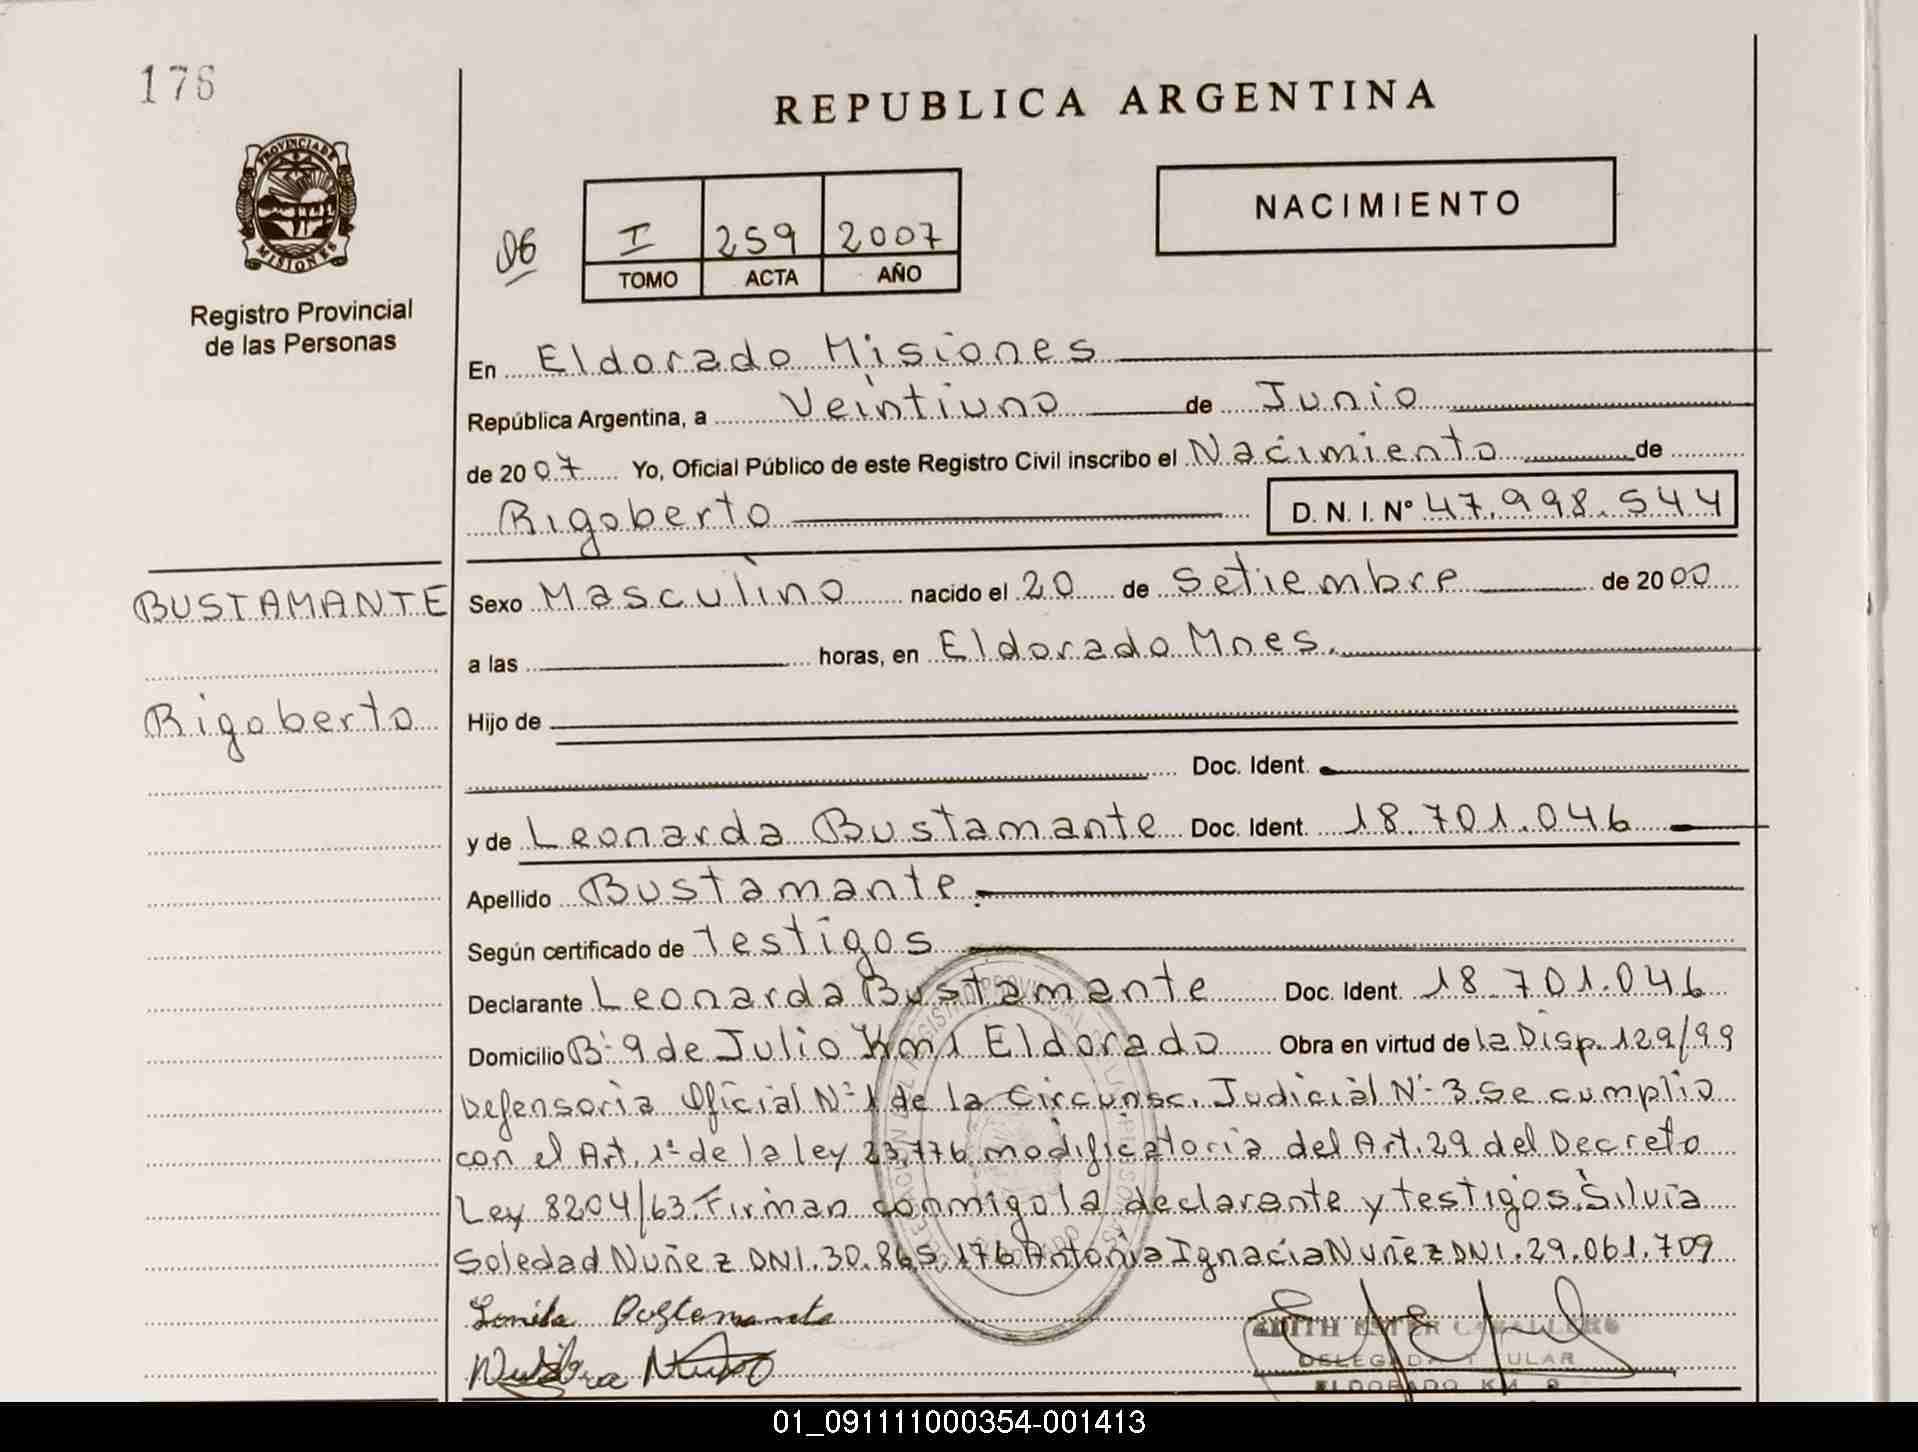 178
PROVINCIA DE
MISIONES
Registro Provincial
de las Personas
REPUBLICA ARGENTINA
NACIMIENTO
06
I 259 2007
TOMO ACTA AÑO
En Eldorado Misiones
República Argentina, a Veintiuno de Junio
de 2007 Yo, Oficial Público de este Registro Civil inscribo el Nacimiento de
Rigoberto D. N. I. N° 47.998.544
BUSTAMANTE
Rigoberto
Sexo Masculino nacido el 20 de Setiembre de 2000
a las horas, en Eldorado Mnes.
Hijo de
Doc. Ident.
y de Leonarda Bustamante Doc. Ident. 18.701.046
Apellido Bustamante
Según certificado de Testigos
Declarante Leonarda Bustamante Doc. Ident. 18.701.046
Domicilio B° 9 de Julio Km 1 Eldorado Obra en virtud de la Disp. 129/99
Defensoria Oficial N° 1 de la Circunsc. Judicial N° 3 Se cumplio
con el Art. 1° de la ley 23.776 modificatoria del Art. 29 del Decreto
Ley 8204/63. Firman conmigo la declarante y testigos. Silvia
Soledad Nuñez DNI. 30.865.176 Antonia Ignacia Nuñez DNI. 29.061.709
EDITH ESTER CABALLERO
DELEGADA TITULAR
ELDORADO KM 9
01_091111000354-001413